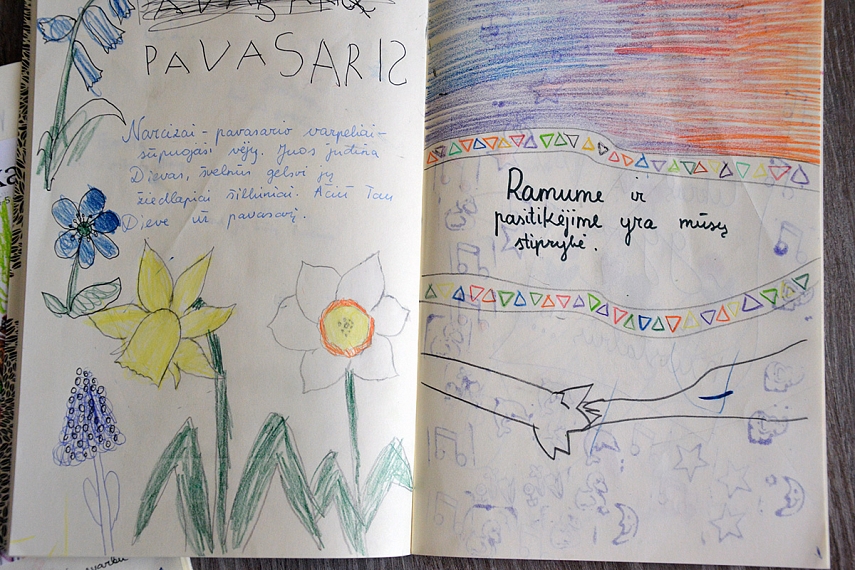 PAVASARIS
Narcizai - pavasario varpeliai -
sūpuojasi vėjy. Juos judina
Dievas, švelnus gelsvi jų
žiedlapiai šilkiniai. Ačiū Tau
Dieve už pavasarį.
Ramume ir
pasitikėjime yra mūsų
stiprybė.